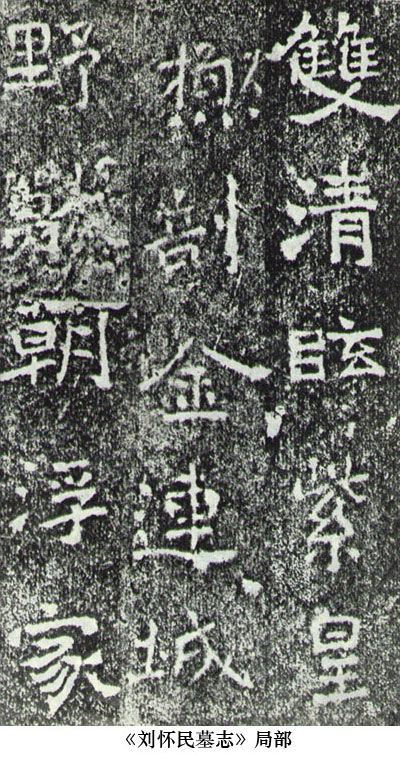 雙清眩紫皇
剖金連城
野獸朝浮家
《刘怀民墓志》局部